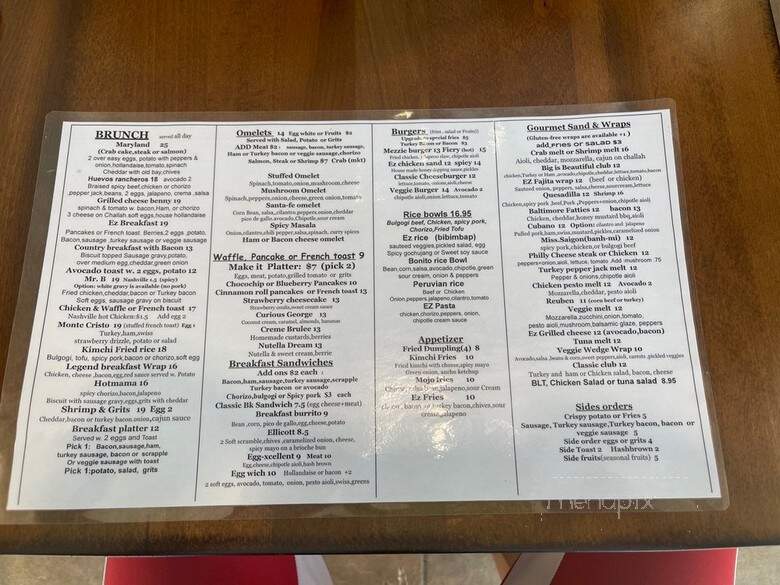 BRUNCH served all day
Maryland 25
(Crab cake,steak or salmon)
2 over easy eggs, potato with peppers &
onion,hollandaise,tomato,spinach
Cheddar with old bay,chives
Huevos rancheros 18 avocado 2
Braised spicy beef,chicken or chorizo
pepper jack,beans, 2 eggs, jalapeno, crema ,salsa
Grilled cheese benny 19
spinach & tomato w. bacon, Ham, or chorizo
3 cheese on Challah.soft eggs,house hollandaise
Ez Breakfast 19
Pancakes or French toast Berries,2 eggs ,potato,
Bacon,sausage ,turkey sausage or veggie sausage
Country breakfast with Bacon 13
Biscuit topped Sausage gravy,potato,
over medium egg,cheddar,green onion
Avocado toast w. 2 eggs, potato 12
Mr. B 19 Nashville 1.5 (spicy)
Option: white gravy is available (no pork)
Fried chicken,cheddar,bacon or Turkey bacon
Soft eggs, sausage gravy on biscuit
Chicken & Waffle or French toast 17
Nashville hot Chicken:$1.5 Add egg 2
Monte Cristo 19 (stuffed french toast) Egg 1
Turkey,ham,swiss
strawberry drizzle, potato or salad
Kimchi Fried rice 18
Bulgogi, tofu, spicy pork,bacon or chorizo,soft egg
Legend breakfast Wrap 16
Chicken, cheese ,bacon,egg,red sauce served w. Potato
Hotmama 16
spicy chorizo,bacon,jalapeno
Biscuit with sausage gravy,eggs,grits with cheddar
Shrimp & Grits 19 Egg 2
Cheddar,bacon or turkey bacon,onion,cajun sauce
Breakfast platter 12
Served w. 2 eggs and Toast
Pick 1: Bacon,sausage,ham,
turkey sausage, bacon or scrapple
Or veggie sausage with toast
Pick 1:potato, salad, grits
Omelets 14 Egg white or Fruits $2
Served with Salad, Potato or Grits
ADD Meat $2 : sausage, bacon, turkey sausage,
Ham or Turkey bacon or veggie sausage,chorizo
Salmon, Steak or Shrimp $7 Crab (mkt)
Stuffed Omelet
Spinach,tomato,onion,mushroom,cheese
Mushroom Omelet
Spinach,peppers,onion,cheese,green onion,tomato
Santa-fe omelet
Corn Bean, salsa,,cilantro,peppers,onion,cheddar
pico de gallo,avocado,Chipotle,sour cream
Spicy Masala
Onion,cilantro,chili pepper,salsa,spinach, curry spices
Ham or Bacon cheese omelet
Waffle, Pancake or French toast 9
Make it Platter: $7 (pick 2)
Eggs, meat, potato,grilled tomato or grits
Chocochip or Blueberry Pancakes 10
Cinnamon roll pancakes or French toast 13
Strawberry cheesecake 13
Strawberry oreo,sweet cream sauce
Curious George 13
Coconut cream, caramel, almonds, bananas
Creme Brulee 13
Homemade custards,berries
Nutella Dream 13
Nutella & sweet cream,berrie
Breakfast Sandwiches
Add ons $2 each :
Bacon,ham,sausage,turkey sausage,scrapple
Turkey bacon or avocado
Chorizo,bulgogi or Spicy pork $3 each
Classic Bk Sandwich 7.5 (egg cheese+meat)
Breakfast burrito 9
Bean ,corn, pico de gallo,egg,cheese,potato
Ellicott 8.5
2 Soft scramble,chives ,caramelized onion, cheese,
spicy mayo on a brioche bun
Egg-xcellent 9 Meat 10
Egg,cheese,chipotle aioli,hash brown
Egg wich 10 Hollandaise or bacon +2
2 soft eggs, avocado, tomato, onion, pesto aioli,swiss,greens
Burgers (fries , salad or Fruits)
Upgrade special fries $5
Turkey Bacon or Bacon $3
Mezzie burger 13 Fiery (hot) 15
Fried chicken, slaw, chipotle aioli
Ez chicken sand 12 spicy 14
House made honey sauce,pickles
Classic Cheeseburger 12
lettuce,tomato, onions aioli,cheese
Veggie Burger 14 Avocado 2
chipotle aioli,onion,lettuce,tomato
Rice bowls 16.95
Bulgogi beef, Chicken, spicy pork,
Chorizo,Fried Tofu
Ez rice (bibimbap)
sauteed veggies,pickled salad, egg
Spicy gochujang or Sweet soy sauce
Bonito rice Bowl
Bean,corn,salsa,avocado,chipotle,green
sour cream, onion & peppers
Peruvian rice
Beef or Chicken
Onion,peppers,jalapeno,cilantro,tomato
EZ Pasta
chicken,chorizo,peppers, onion,
chipotle cream sauce
Appetizer
Fried Dumpling(4) 8
Kimchi Fries 10
Fried kimchi with cheese,spicy mayo
Green onion, ancho ketchup
Mojo fries 10
bacon,jalapeno,sour Cream
Ez Fries 10
bacon or turkey bacon,chives,sour
cream,jalapeno
Gourmet Sand & Wraps
(Gluten-free wraps are available +1 )
add,fries or SALAD $3
Crab melt or Shrimp melt 16
Aioli, cheddar, mozzarella, cajun on challah
Big is Beautiful club 12
chicken,Turkey or Ham ,avocado,chipotle,cheddar,lettuce,tomato,bacon
EZ Fajita wrap 12 (beef or chicken)
Sauteed onion, peppers, salsa,cheese,sourcream,lettuce
Quesadilla 12 Shrimp 16
Chicken,spicy pork ,beef,Pork ,Peppers+onion,chipotle aioli
Baltimore Fatties 12 bacon 13
Onion, cheddar,honey mustard bbq,aioli
Cubano 12 Option: cilantro and jalapeno
Pulled pork,ham,swiss,mustard,pickles,caramelized onions
Miss.Saigon(banh-mi) 12
spicy pork,chicken,or bulgogi beef
Philly Cheese steak or Chicken 12
peppers+onion,aioli, lettuce, tomato Add mushroom .75
Turkey pepper jack melt 12
Pepper & onions,chipotle aioli
Chicken pesto melt 12 Avocado 2
Mozzarella,cheddar,pesto aioli
Reuben 11 (corn beef or turkey)
Veggie melt 12
Mozzarella,zucchini,onion,tomato,
pesto aioli,mushroom,balsamic glaze, peppers
Ez Grilled cheese 12 (avocado,bacon)
Tuna melt 12
Veggie Wedge Wrap 10
Avocado,salsa ,beans & corn,sweet peppers,aioli, carrots ,pickled veggies
Classic club 12
Turkey and ham or Chicken salad, bacon, cheese
BLT, Chicken Salad or tuna salad 8.95
Sides orders
Crispy potato or Fries 5
Sausage, Turkey sausage,Turkey bacon, bacon or
veggie sausage 5
Side order eggs or grits 4
Side Toast 2 Hashbrown 2
Side fruits(seasonal fruits) 5
menupix